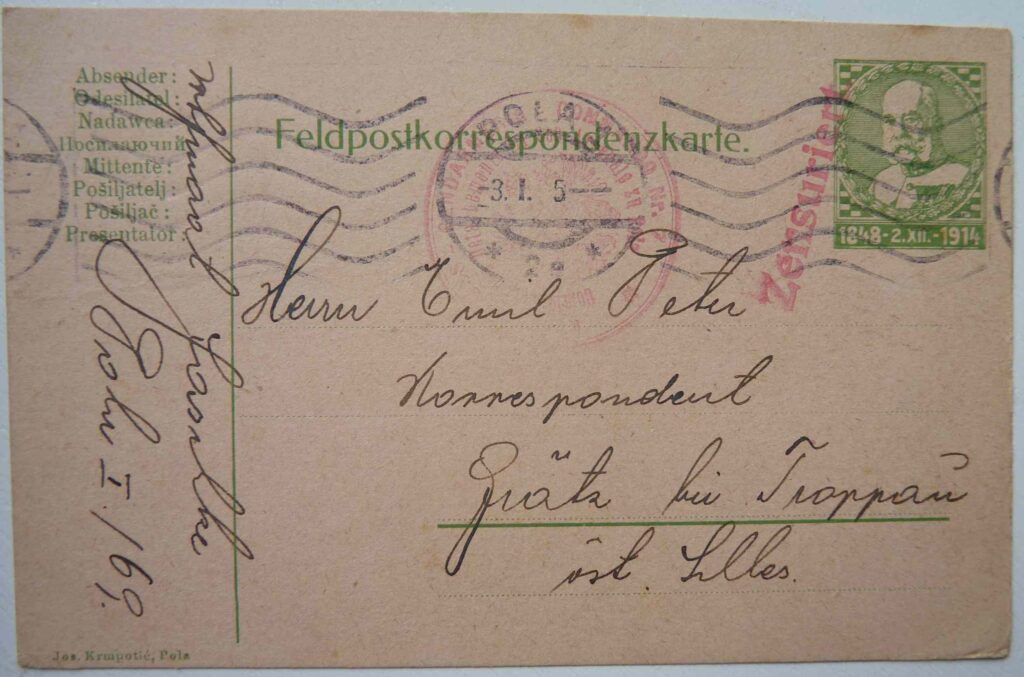 Absender:
Odesílatel:
Nadawca:
Посилаючий
Mittente:
Pošiljatelj:
Pošiljač:
Presentator:
Feldpostkorrespondenzkarte.
POLA
-3.I. 5-
* 2a *
Zensuriert
1848-2.XII.-1914
Herrn Emil Peter
Korrespondent
Grätz bei Troppau
öst. Schles.
Pola I/169.
Jos. Krmpotić, Pola